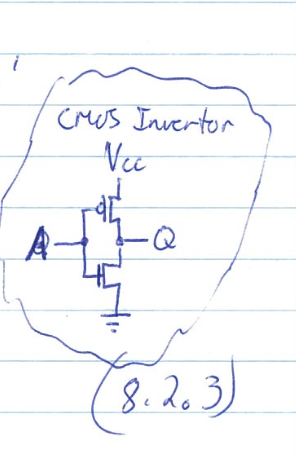 CMOS Invertor
Vcc
A Q
(8.2.3)